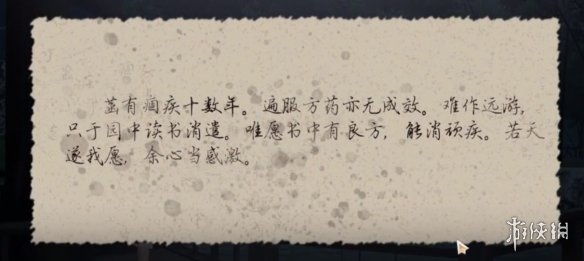 茧有痼疾十数年。遍服方药亦无成效。难作远游,
只于园中读书消遣。唯愿书中有良方,能消顽疾。若天
遂我愿,余心当感激。
游侠网